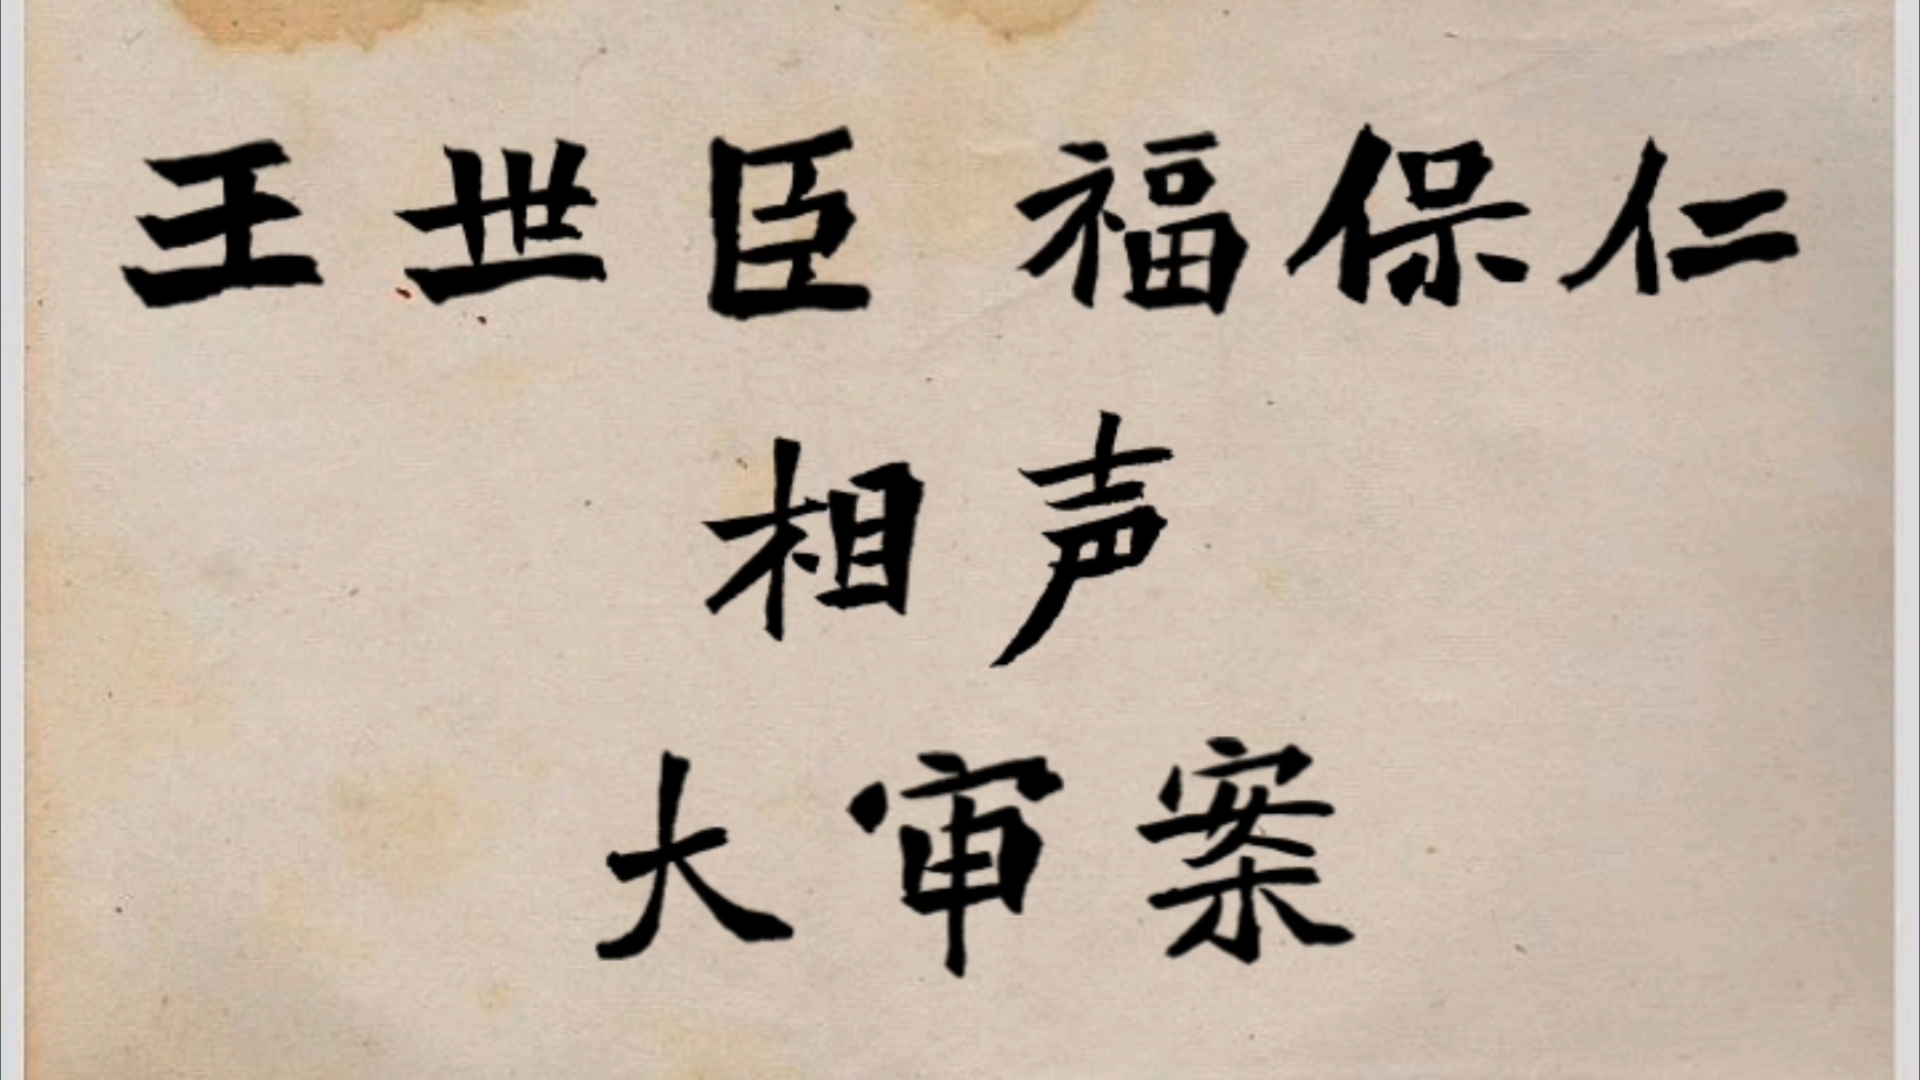 王世臣 福保仁
相声
大审案